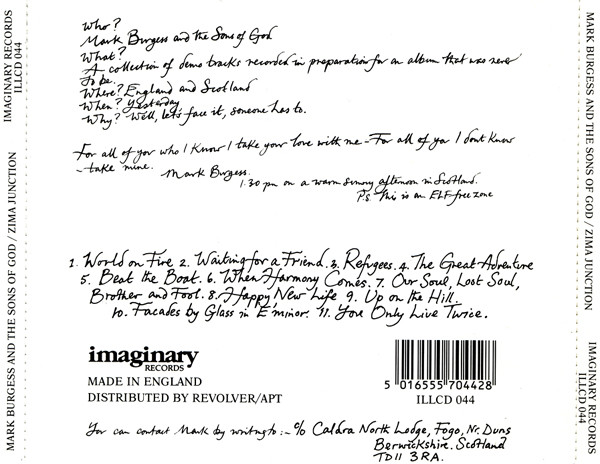 Who?
Mark Burgess and the Sons of God
What?
A collection of demo tracks recorded in preparation for an album that was never
to be.
Where? England and Scotland
When? Yesterday
Why? Well, let's face it, someone has to.
For all of you who I know I take your love with me - For all of you I dont know
- take mine.
Mark Burgess.
1.30 pm on a warm sunny afternoon in Scotland.
P.S. This is an ELF-free zone
1. World on Fire 2. Waiting for a Friend. 3. Refugees. 4. The Great Adventure
5. Beat the Boat. 6. When Harmony Comes. 7. Our Soul, Lost Soul,
Brother and Fool. 8. Happy New Life 9. Up on the Hill.
10. Facades by Glass in E minor. 11. You Only Live Twice.
imaginary
RECORDS
MADE IN ENGLAND
DISTRIBUTED BY REVOLVER/APT
5 016555 704428
ILLCD 044
You can contact Mark by writing to :- c/o Caldra North Lodge, Fogo, Nr. Duns
Berwickshire. Scotland
TD11 3RA.
MARK BURGESS AND THE SONS OF GOD / ZIMA JUNCTION
IMAGINARY RECORDS
ILLCD 044
MARK BURGESS AND THE SONS OF GOD / ZIMA JUNCTION
IMAGINARY RECORDS
ILLCD 044